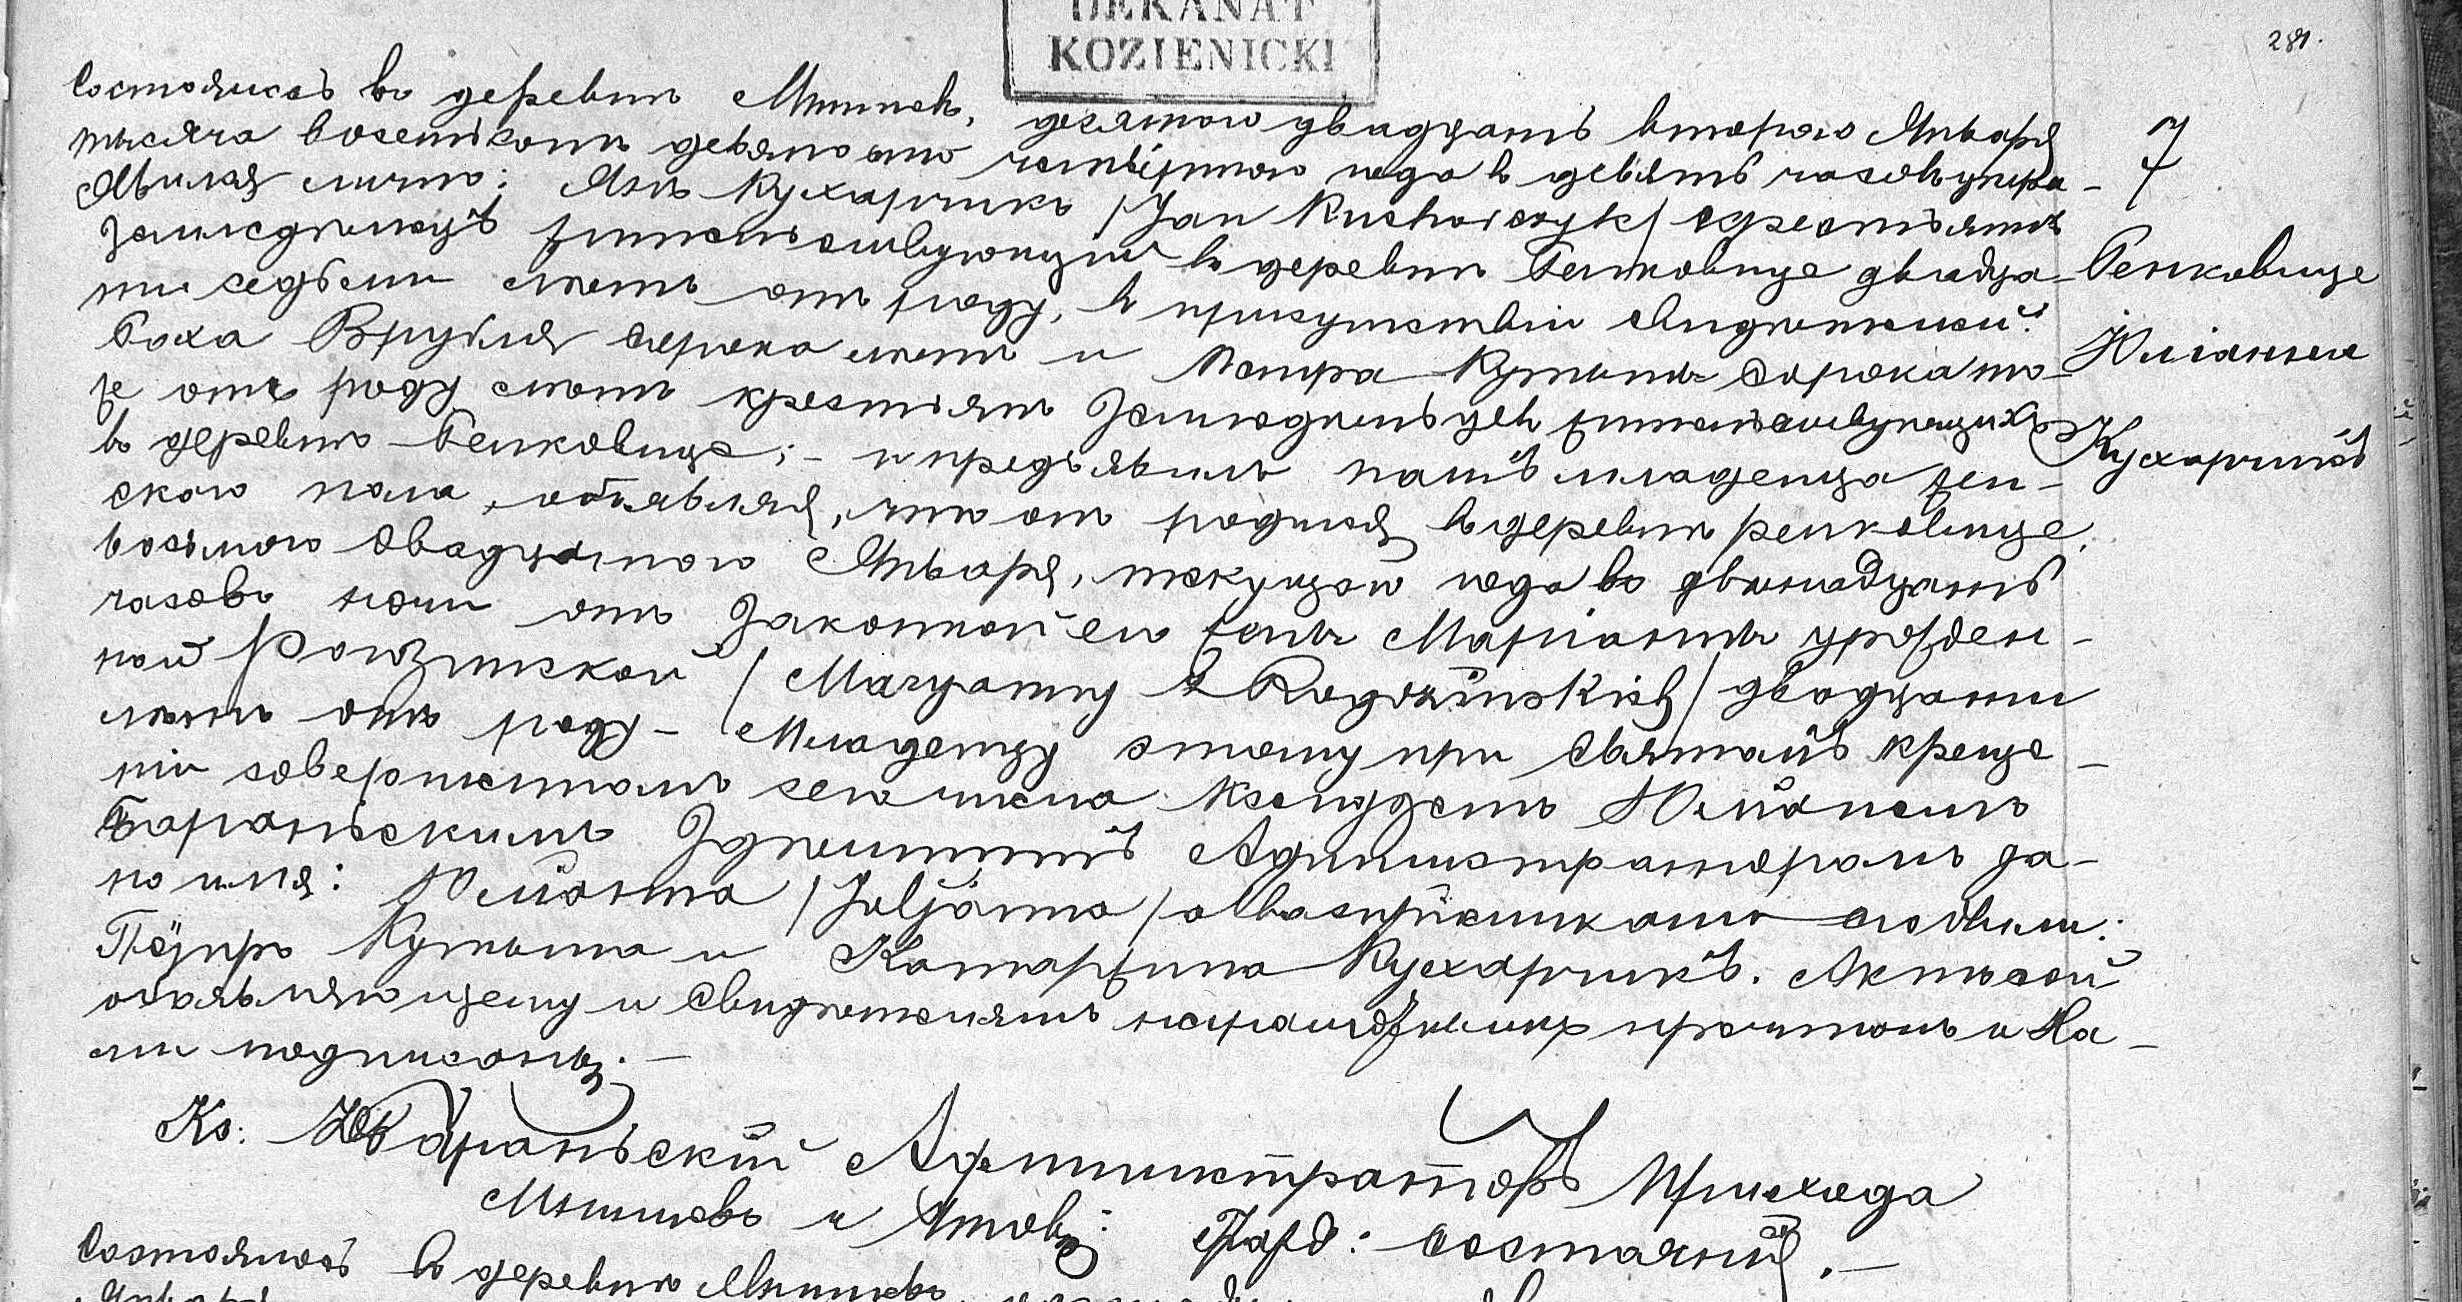 DEKANAT
KOZIENICKI
281.
Состоялось въ деревнѣ Мнишекъ, десятаго двадцать втораго Января
тысяча восемьсотъ девяносто четвертаго года въ девять часовъ утра-
Явился лично: Янъ Кухарчикъ /Jan Kucharczyk/ крестьянинъ
земледѣлецъ жительствующій въ деревнѣ Генковице двадца-
ти седьми лѣтъ отъ роду, въ присутствіи свидѣтелей:
Роха Врубля сорока лѣтъ и Петра Кутыла сорока то-
же отъ роду лѣтъ крестьянъ земледѣльцевъ жительствующихъ
въ деревнѣ Генковице;- и предъявилъ намъ младенца жен-
скаго пола, объявляя, что онъ родился въ деревнѣ Генковице,
восьмаго двадцатаго Января, текущаго года въ двѣнадцать
часовъ ночи отъ законной его жены Маріанны урожден-
ной Рогозинской /Maryanny z Rogozińskich/ двадцати
лѣтъ отъ роду- Младенцу этому при Святомъ креще-
ніи совершенномъ сего числа Ксендзомъ Юліаномъ
Бараньскимъ Здѣшнимъ Администраторомъ да-
но имя: Юліанна /Juljanna/ а восприемниками были:
Петръ Кутыла и Катаржина Кухарчикъ. Актъ сей
объявляющему и свидѣтелямъ неграмотнымъ прочитанъ и На-
ми подписанъ.-
Кс: Ю Бараньскій Администраторъ Прихода
Мнишекъ и Актовъ: Гражд: состоянія.-
7
Генковице
Юліанна
Кухарчикъ
Состоялось въ деревнѣ Мнишекъ,